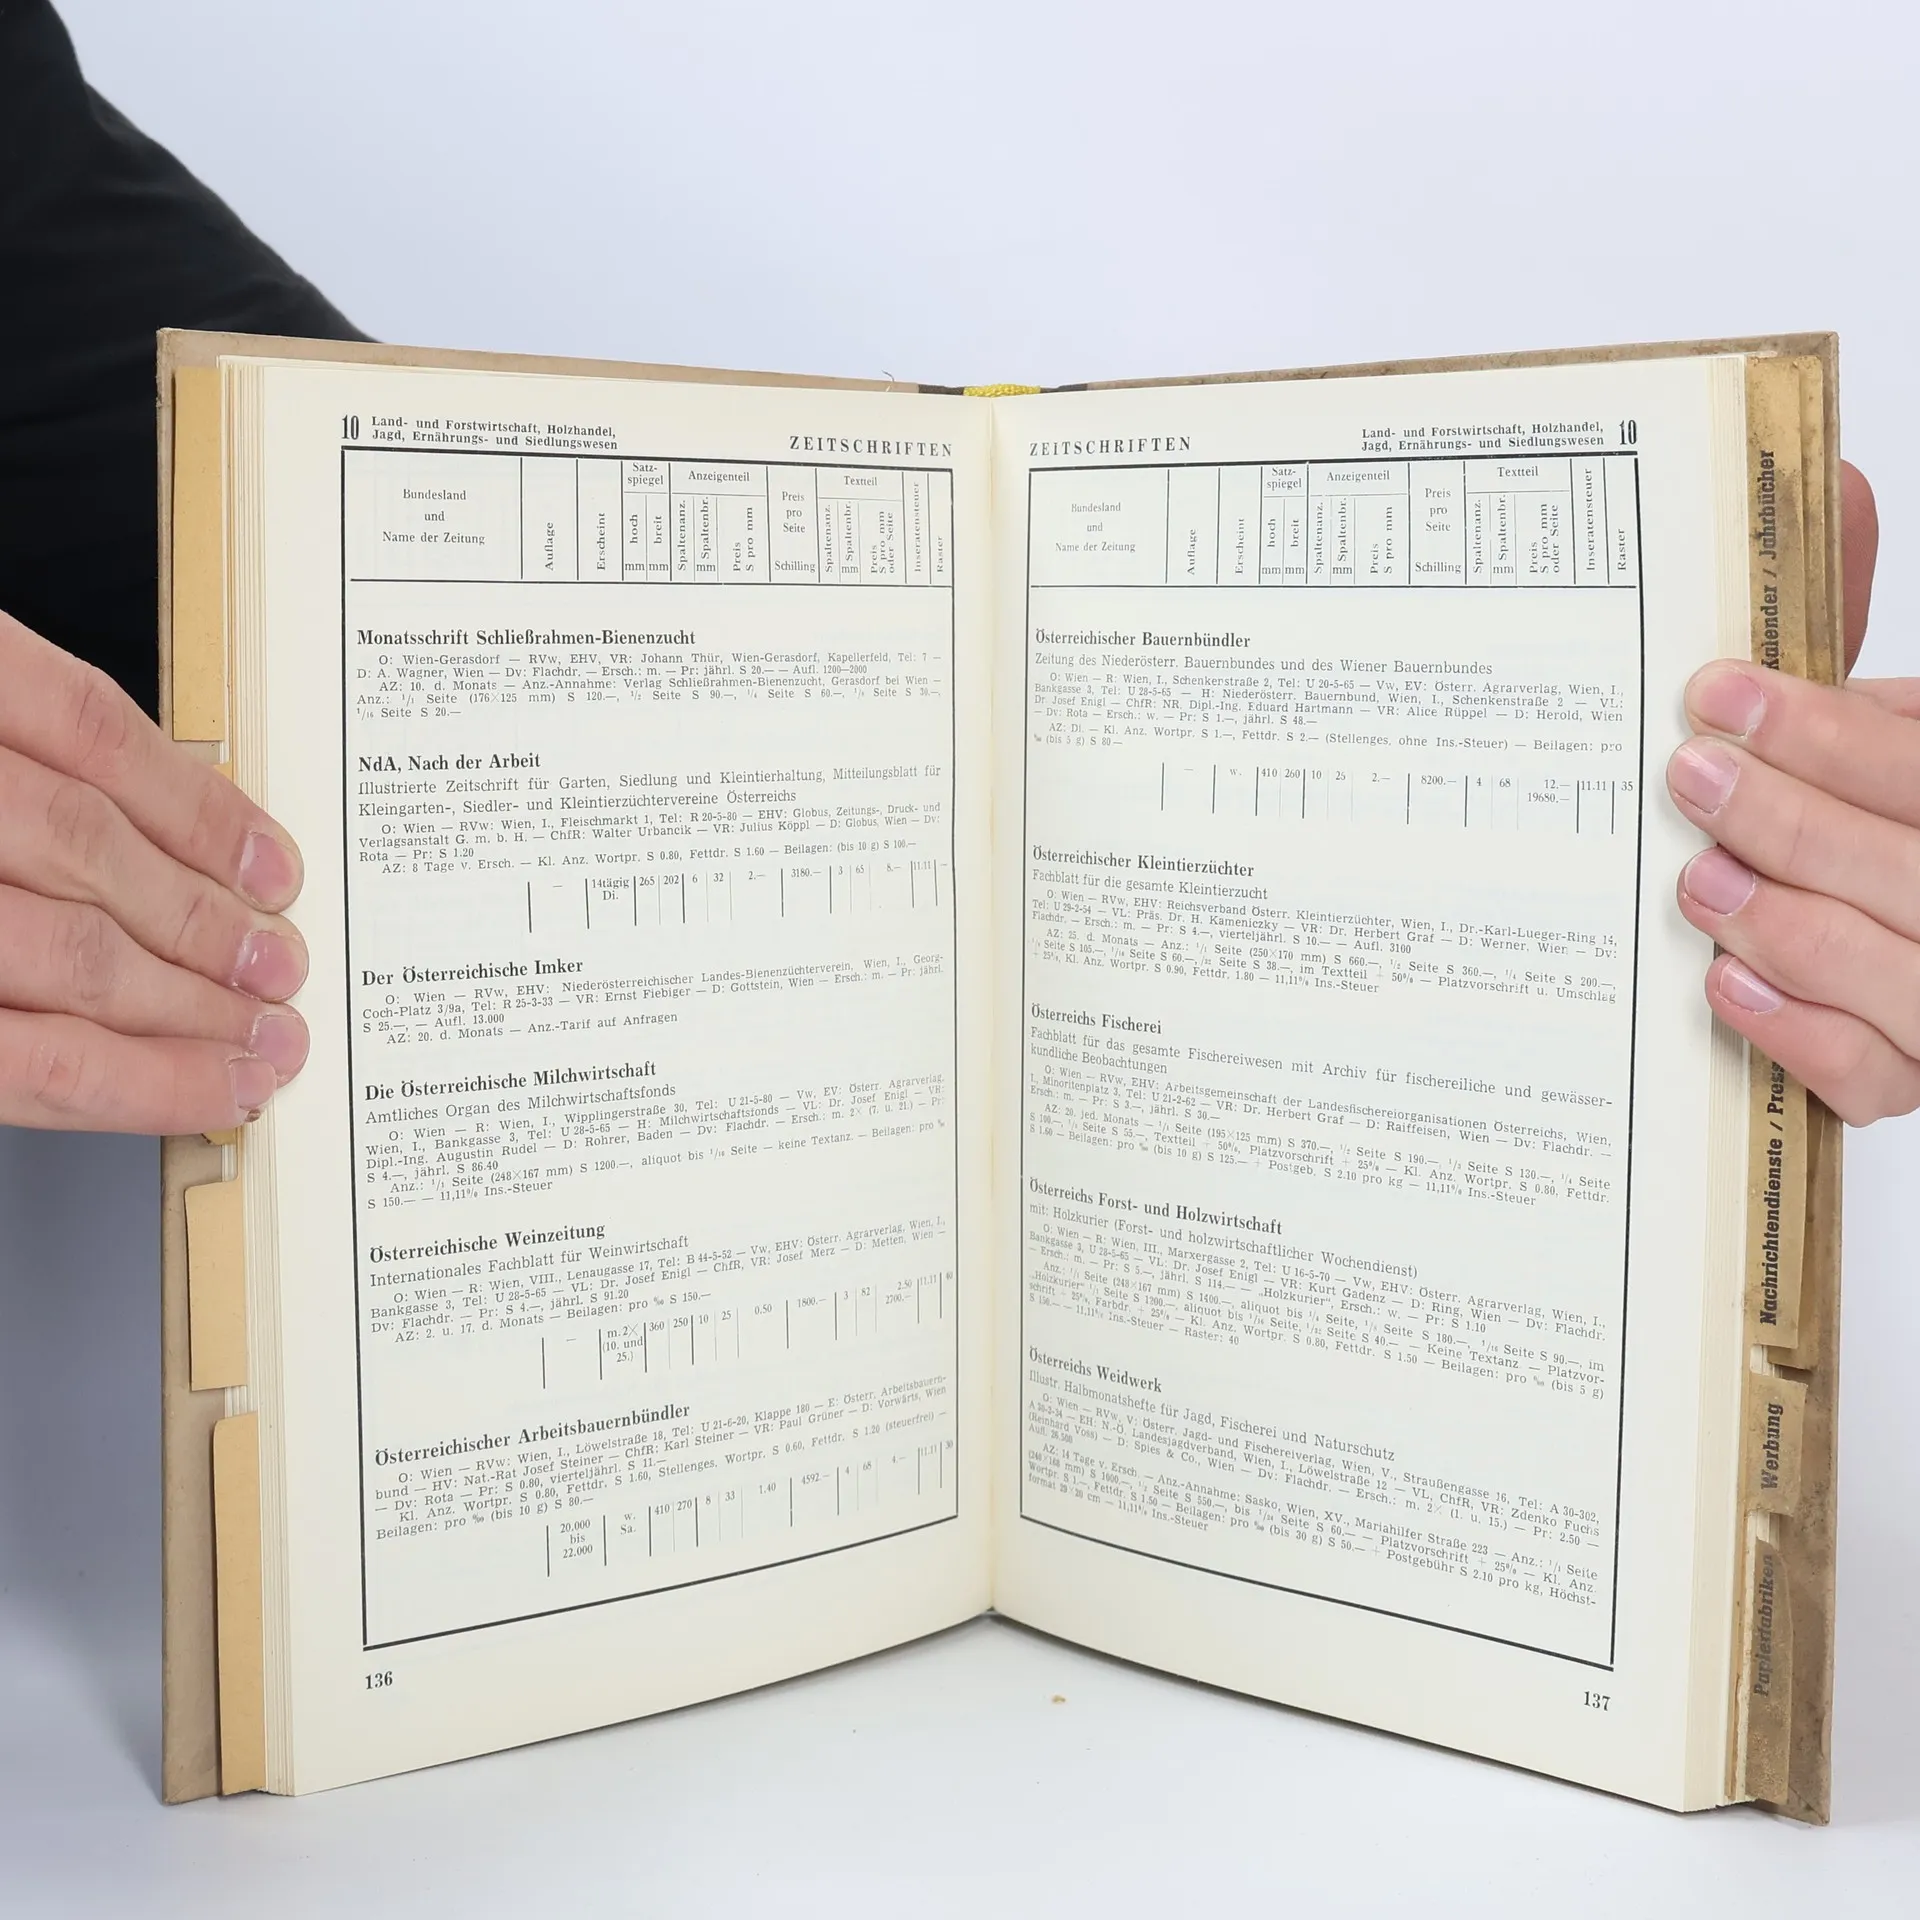 10 Land- und Forstwirtschaft, Holzhandel,
Jagd, Ernährungs- und Siedlungswesen
ZEITSCHRIFTEN
Bundesland
und
Name der Zeitung
Auflage
Erscheint
Satz-
spiegel
hoch
mm
breit
mm
Anzeigenteil
Spaltenanz.
Spaltenbr.
mm
Preis
S pro mm
Preis
pro
Seite
Schilling
Textteil
Spaltenanz.
Spaltenbr.
mm
Preis
S pro mm
oder Seite
Inseratensteuer
Raster
Monatsschrift Schließrahmen-Bienenzucht
O: Wien-Gerasdorf — RVw, EHV, VR: Johann Thür, Wien-Gerasdorf, Kapellerfeld, Tel: 7 —
D: A. Wagner, Wien — Dv: Flachdr. — Ersch.: m. — Pr: jährl. S 20.— — Aufl. 1200—2000
AZ: 10. d. Monats — Anz.-Annahme: Verlag Schließrahmen-Bienenzucht, Gerasdorf bei Wien —
Anz.: 1/1 Seite (176×125 mm) S 120.—, 1/2 Seite S 90.—, 1/4 Seite S 60.—, 1/8 Seite S 30.—,
1/16 Seite S 20.—
NdA, Nach der Arbeit
Illustrierte Zeitschrift für Garten, Siedlung und Kleintierhaltung, Mitteilungsblatt für
Kleingarten-, Siedler- und Kleintierzüchtervereine Österreichs
O: Wien — RVw: Wien, I., Fleischmarkt 1, Tel: R 20-5-80 — EHV: Globus, Zeitungs-, Druck- und
Verlagsanstalt G. m. b. H. — ChfR: Walter Urbancik — VR: Julius Köppl — D: Globus, Wien — Dv:
Rota — Pr: S 1.20
AZ: 8 Tage v. Ersch. — Kl. Anz. Wortpr. S 0.80, Fettdr. S 1.60 — Beilagen: (bis 10 g) S 100.—
— 14tägig 265 202 6 32 2.— 3180.— 3 65 8.— 11.11 —
Di.
Der Österreichische Imker
O: Wien — RVw, EHV: Niederösterreichischer Landes-Bienenzüchterverein, Wien, I., Georg-
Coch-Platz 3/9a, Tel: R 25-3-33 — VR: Ernst Fiebiger — D: Gottstein, Wien — Ersch.: m. — Pr: jährl.
S 25.—, — Aufl. 13.000
AZ: 20. d. Monats — Anz.-Tarif auf Anfragen
Die Österreichische Milchwirtschaft
Amtliches Organ des Milchwirtschaftsfonds
O: Wien — R: Wien, I., Wipplingerstraße 30, Tel: U 21-5-80 — Vw, EV: Österr. Agrarverlag,
Wien, I., Bankgasse 3, Tel: U 28-5-65 — H: Milchwirtschaftsfonds — VL: Dr. Josef Enigl — VR:
Dipl.-Ing. Augustin Rudel — D: Rohrer, Baden — Dv: Flachdr. — Ersch.: m. 2× (7. u. 21.) — Pr:
S 4.—, jährl. S 86.40
Anz.: 1/1 Seite (248×167 mm) S 1200.—, aliquot bis 1/16 Seite — keine Textanz. — Beilagen: pro ‰
S 150.— — 11,11% Ins.-Steuer
Österreichische Weinzeitung
Internationales Fachblatt für Weinwirtschaft
O: Wien — R: Wien, VIII., Lenaugasse 17, Tel: B 44-5-52 — Vw, EHV: Österr. Agrarverlag, Wien, I.,
Bankgasse 3, Tel: U 28-5-65 — VL: Dr. Josef Enigl — ChfR, VR: Josef Merz — D: Metten, Wien —
Dv: Flachdr. — Pr: S 4.—, jährl. S 91.20
AZ: 2. u. 17. d. Monats — Beilagen: pro ‰ S 150.—
— m. 2× 360 250 10 25 0.50 1800.— 3 82 2.50 11.11 60
(10. und 2700.—
25.)
Österreichischer Arbeitsbauernbündler
O: Wien — RVw: Wien, I., Löwelstraße 18, Tel: U 21-6-20, Klappe 180 — E: Österr. Arbeitsbauern-
bund — HV: Nat.-Rat Josef Steiner — ChfR: Karl Steiner — VR: Paul Grüner — D: Vorwärts, Wien
— Dv: Rota — Pr: S 0.80, vierteljährl. S 11.—
Kl. Anz. Wortpr. S 0.80, Fettdr. S 1.60, Stellenges. Wortpr. S 0.60, Fettdr. S 1.20 (steuerfrei) —
Beilagen: pro ‰ (bis 10 g) S 80.—
20.000 w. 410 270 8 33 1.40 4592.— 4 68 4.— 11.11 30
bis Sa.
22.000
136
ZEITSCHRIFTEN
Land- und Forstwirtschaft, Holzhandel, 10
Jagd, Ernährungs- und Siedlungswesen
Bundesland
und
Name der Zeitung
Auflage
Erscheint
Satz-
spiegel
hoch
mm
breit
mm
Anzeigenteil
Spaltenanz.
Spaltenbr.
mm
Preis
S pro mm
Preis
pro
Seite
Schilling
Textteil
Spaltenanz.
Spaltenbr.
mm
Preis
S pro mm
oder Seite
Inseratensteuer
Raster
Österreichischer Bauernbündler
Zeitung des Niederösterr. Bauernbundes und des Wiener Bauernbundes
O: Wien — R: Wien, I., Schenkerstraße 2, Tel: U 20-5-65 — Vw, EV: Österr. Agrarverlag, Wien, I.,
Bankgasse 3, Tel: U 28-5-65 — H: Niederösterr. Bauernbund, Wien, I., Schenkenstraße 2 — VL:
Dr. Josef Enigl — ChfR: NR. Dipl.-Ing. Eduard Hartmann — VR: Alice Rüppel — D: Herold, Wien
— Dv: Rota — Ersch.: w. — Pr: S 1.—, jährl. S 48.—
AZ: Di. — Kl. Anz. Wortpr. S 1.—, Fettdr. S 2.— (Stellenges. ohne Ins.-Steuer) — Beilagen: pro
‰ (bis 5 g) S 80—
— w. 410 260 10 25 2.— 8200.— 4 68 12.— 11.11 35
19680.—
Österreichischer Kleintierzüchter
Fachblatt für die gesamte Kleintierzucht
O: Wien — RVw, EHV: Reichsverband Österr. Kleintierzüchter, Wien, I., Dr.-Karl-Lueger-Ring 14,
Tel: U 29-2-54 — VL: Präs. Dr. H. Kameniczky — VR: Dr. Herbert Graf — D: Werner, Wien — Dv:
Flachdr. — Ersch.: m. — Pr: S 4.—, vierteljährl. S 10.— — Aufl. 3100
AZ: 25. d. Monats — Anz.: 1/1 Seite (250×170 mm) S 660.—, 1/2 Seite S 360.—, 1/4 Seite S 200.—,
1/8 Seite S 105.—, 1/16 Seite S 60.—, 1/32 Seite S 38.—, im Textteil + 50% — Platzvorschrift u. Umschlag
+ 25%, Kl. Anz. Wortpr. S 0.90, Fettdr. 1.80 — 11,11% Ins.-Steuer
Österreichs Fischerei
Fachblatt für das gesamte Fischereiwesen mit Archiv für fischereiliche und gewässer-
kundliche Beobachtungen
O: Wien — RVw, EHV: Arbeitsgemeinschaft der Landesfischereiorganisationen Österreichs, Wien,
I., Minoritenplatz 3, Tel: U 21-2-62 — VR: Dr. Herbert Graf — D: Raiffeisen, Wien — Dv: Flachdr. —
Ersch.: m. — Pr: S 3.—, jährl. S 30.—
AZ: 20. jed. Monats — 1/1 Seite (195×125 mm) S 370.—, 1/2 Seite S 190.—, 1/3 Seite S 130.—, 1/4 Seite
S 100.—, 1/8 Seite S 55.—, Textteil + 50%, Platzvorschrift + 25% — Kl. Anz. Wortpr. S 0.80, Fettdr.
S 1.60 — Beilagen: pro ‰ (bis 10 g) S 125.— + Postgeb. S 2.10 pro kg — 11,11% Ins.-Steuer
Österreichs Forst- und Holzwirtschaft
mit: Holzkurier (Forst- und holzwirtschaftlicher Wochendienst)
O: Wien — R: Wien, III., Marxergasse 2, Tel: U 16-5-70 — Vw, EHV: Österr. Agrarverlag, Wien, I.,
Bankgasse 3, U 28-5-65 — VL: Dr. Josef Enigl — VR: Kurt Gadenz — D: Ring, Wien — Dv: Flachdr.
— Ersch.: m. — Pr: S 5.—, jährl. S 114.— — „Holzkurier“, Ersch.: w. — Pr: S 1.10
Anz.: 1/1 Seite (248×167 mm) S 1400.—, aliquot bis 1/4 Seite, 1/8 Seite S 180.—, 1/16 Seite S 90.—, im
„Holzkurier“ 1/1 Seite S 1200.—, aliquot bis 1/16 Seite, 1/32 Seite S 40.— — Keine Textanz. — Platzvor-
schrift + 25%, Farbdr. + 25% — Kl. Anz. Wortpr. S 0.80, Fettdr. S 1.50 — Beilagen: pro ‰ (bis 5 g)
S 150.— — 11,11% Ins.-Steuer — Raster: 40
Österreichs Weidwerk
Illustr. Halbmonatshefte für Jagd, Fischerei und Naturschutz
O: Wien — RVw, V: Österr. Jagd- und Fischereiverlag, Wien, V., Straußengasse 16, Tel: A 30-302,
A 30-3-34 — EH: N.-Ö. Landesjagdverband, Wien, I., Löwelstraße 12 — VL, ChfR, VR: Zdenko Fuchs
(Reinhard Voss) — D: Spies & Co., Wien — Dv: Flachdr. — Ersch.: m. 2× (1. u. 15.) — Pr: 2.50 —
Aufl. 26.500
AZ: 14 Tage v. Ersch. — Anz.-Annahme: Sasko, Wien, XV., Mariahilfer Straße 223 — Anz.: 1/1 Seite
(248×168 mm) S 1000.—, 1/2 Seite S 550.—, bis 1/24 Seite S 60.— — Platzvorschrift + 25% — Kl. Anz.
Wortpr. S 1.—, Fettdr. S 1.50 — Beilagen: pro ‰ (bis 30 g) S 50.— + Postgebühr S 2.10 pro kg, Höchst-
format 29×20 cm — 11,11% Ins.-Steuer
137
Kalender / Jahrbücher
Nachrichtendienste / Press
Werbung
Papierfabriken